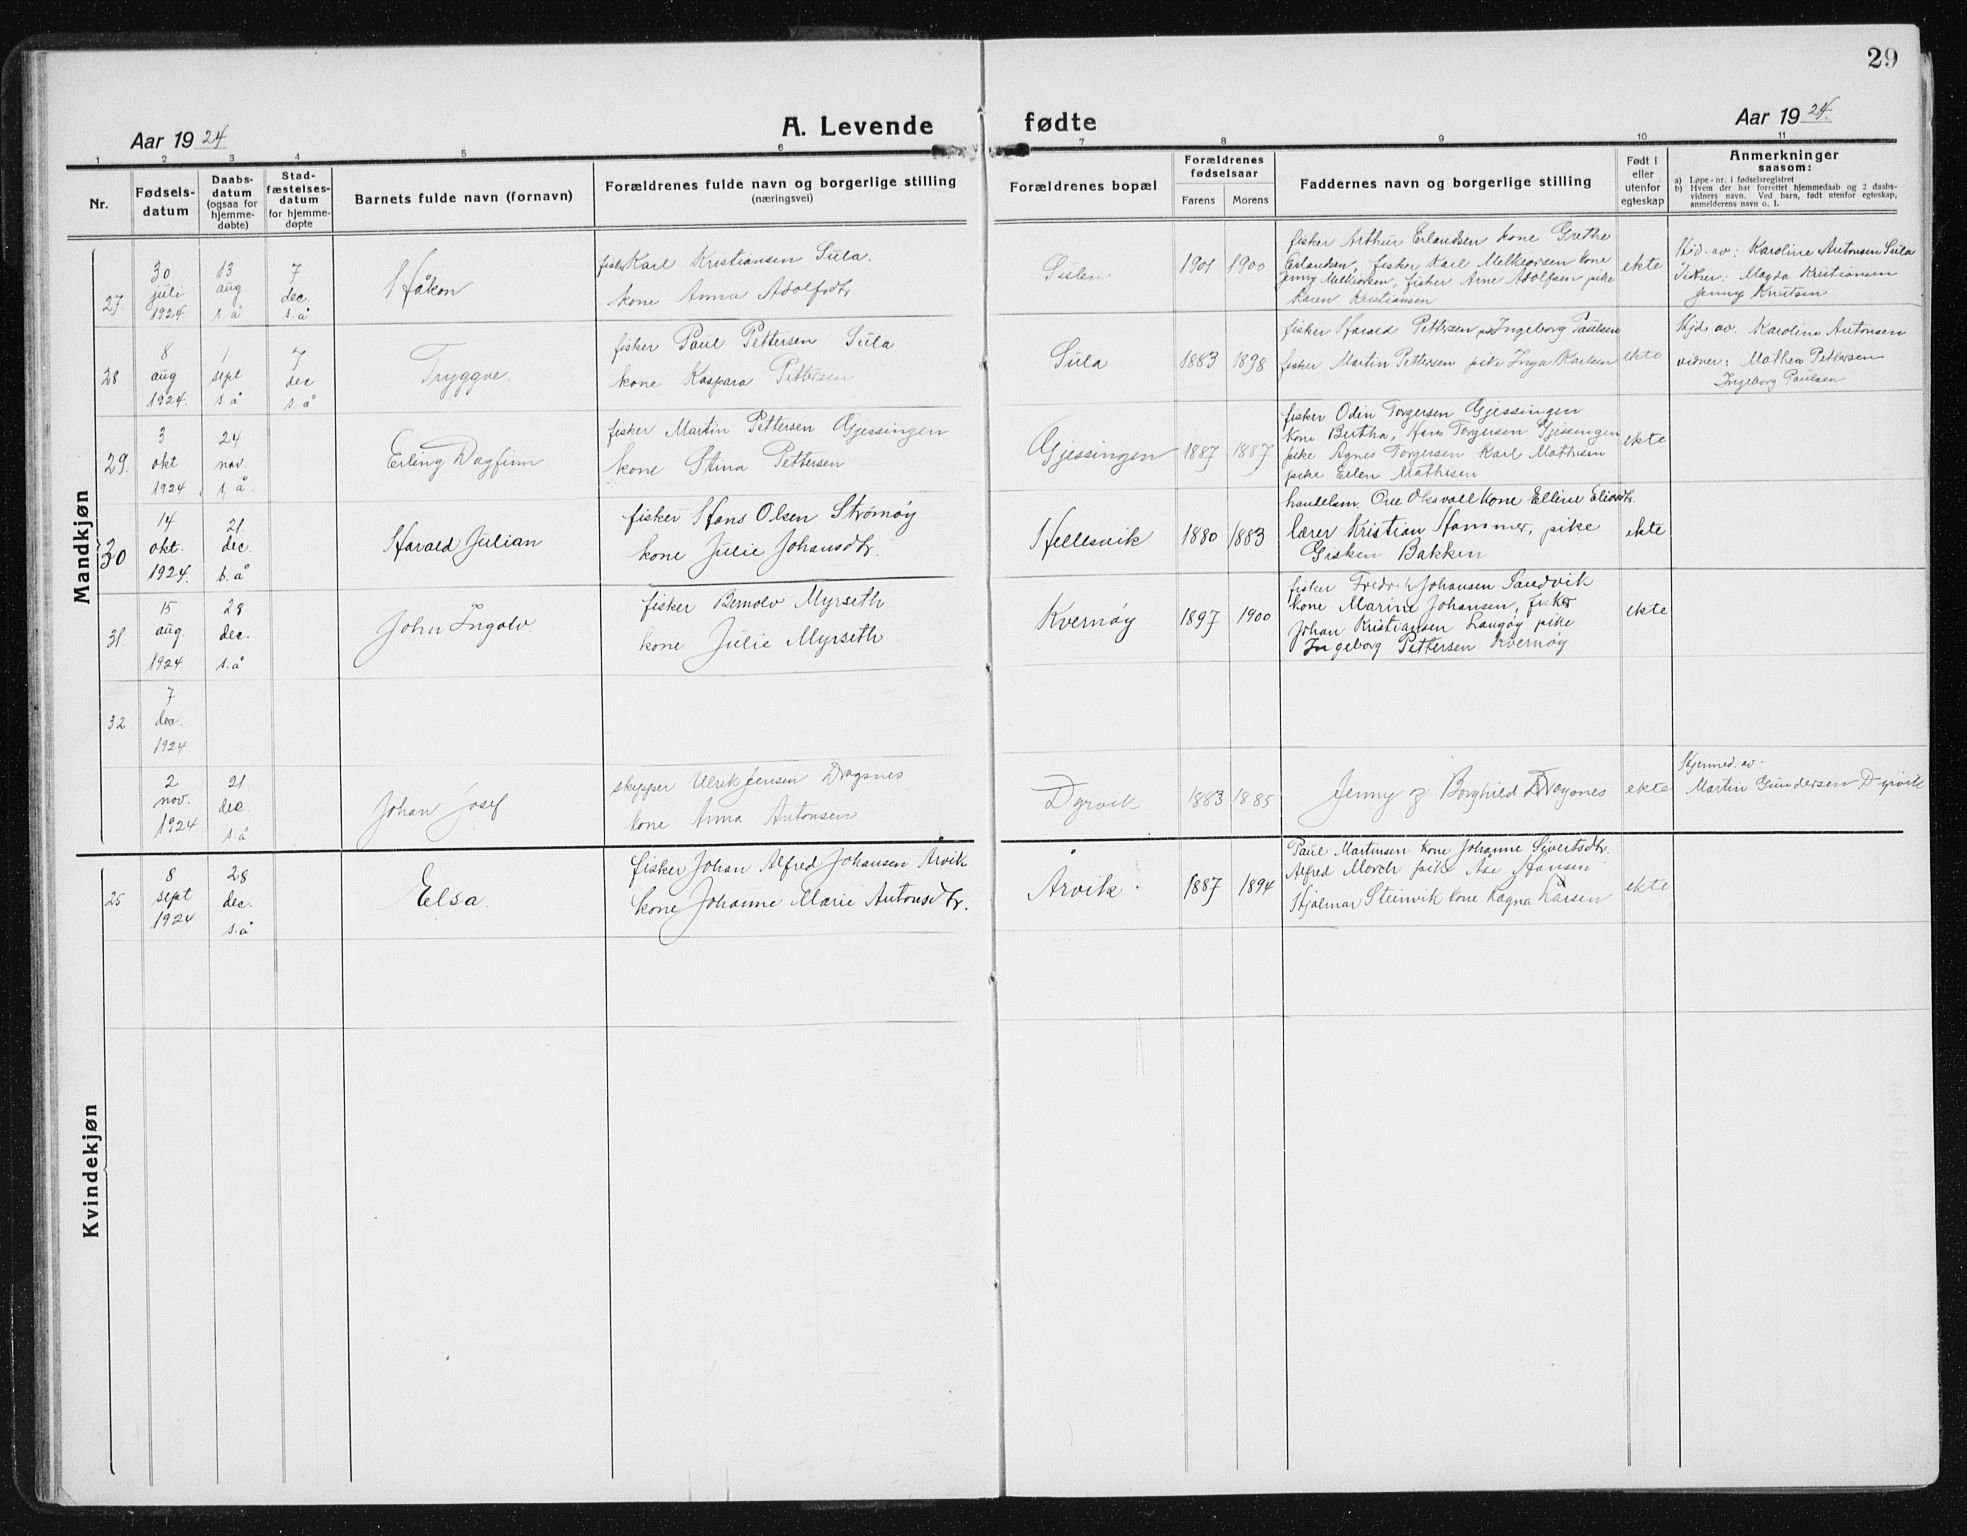 29
Aar 1924
A. Levende fødte
Aar 1924.
1 2 3 4 5 6 7 8 9 10 11
Nr.
Fødsels-
datum
Daabs-
datum
(ogsaa for
hjemme-
døbte)
Stad-
fæstelses-
datum
for hjemme-
døpte
Barnets fulde navn (fornavn)
Forældrenes fulde navn og borgerlige stilling
(næringsvei)
Forældrenes bopæl
Forældrenes
fødselsaar
Farens Morens
Faddernes navn og borgerlige stilling
Født i
eller
utenfor
egteskap
Anmerkninger
saasom:
a) Løpe-nr. i fødselsregistret
b) Hvem der har forrettet hjemmedaab og 2 daabs-
vidners navn. Ved barn, født utenfor egteskap,
anmelderens navn o. l.
Mandkjøn
27.
30
juli
1924
13
aug
s.å
7
dec.
s.å
Håkon
fisker Karl Kristiansen Sula.
kone Anna Adolfsdtr
Sulen
1901 1900
fisker Arthur Erlandsen kone Grethe
Erlandsen, fisker Karl Melkiorsen kone
Jenny Melkiorsen, fisker Arne Adolfsen pike
Karen Kristiansen
ekte
Hjd. av: Karoline Antonsen Sula
Vidner: Magda Kristiansen
Jenny Knutsen
28
8
aug
1924.
1
sept
s.å
7
dec
s.å
Tryggve.
fisker Paul Pettersen Sula
kone Kaspara Pettersen
Sula
1883 1898
fisker Harald Pettersen Ingeborg Paulsen
fisker Martin Pettersen pike Inga Karlsen
ekte
Hjd av. Karoline Antonsen
vidner: Mathea Pettersen
Ingeborg Paulsen
29.
3
okt
1924
24
nov.
s. å.
Erling Dagfinn
fisker Martin Pettersen Gjessingen
kone Stina Pettersen
Gjessingen
1887 1887
fisker Odin Torgersen Gjessingen
kone Bertha, Hans Torgersen Gjessingen
pike Agnes Torgersen Karl Mathisen
pike Ellen Mathisen
ekte
30
14
okt.
1924.
21
dec.
s.å
Harald Julian
fisker Hans Olsen Strømøy
kone Julie Johansdtr.
Hellesvik
1880 1883
handelsm. Ove Oksvoll kone Elline Eliasdtr.
lærer Kristian Hammer, pike
Gisken Bakken
ekte
31.
15
aug.
1924.
28
dec.
s.å
John Ingolv.
fisker Bernolv Myrseth
kone Julie Myrseth
Kvernøy
1897 1900
fisker Fredrik Johansen Sandvik
kone Marine Johansen, fisker
Johan Kristiansen Langøy pike
Ingeborg Pettersen Kvernøy
ekte
32
7
dec.
1924
2
nov.
1924
21
dec
s.å
Johan Josef
skipper Ulrik Jensen Dragsnes
kone Anna Antonsen
Dyrvik
1883 1885
Jenny og Borghild Dragsnes
ekte
Hjemmed. av:
Martin Gundersen Dyrvik
Kvindekjøn
25
8
sept
1924
28
dec.
s.å
Elsa.
fisker Johan Alfred Johansen Årvik
kone Johanne Marie Antonsdtr.
Årvik.
1887 1894
Paul Martinsen kone Johanne Sivertsdtr.
Alfred Morch pike Åse Hansen
Hjalmar Steinvik kone Ragna Larsen
ekte